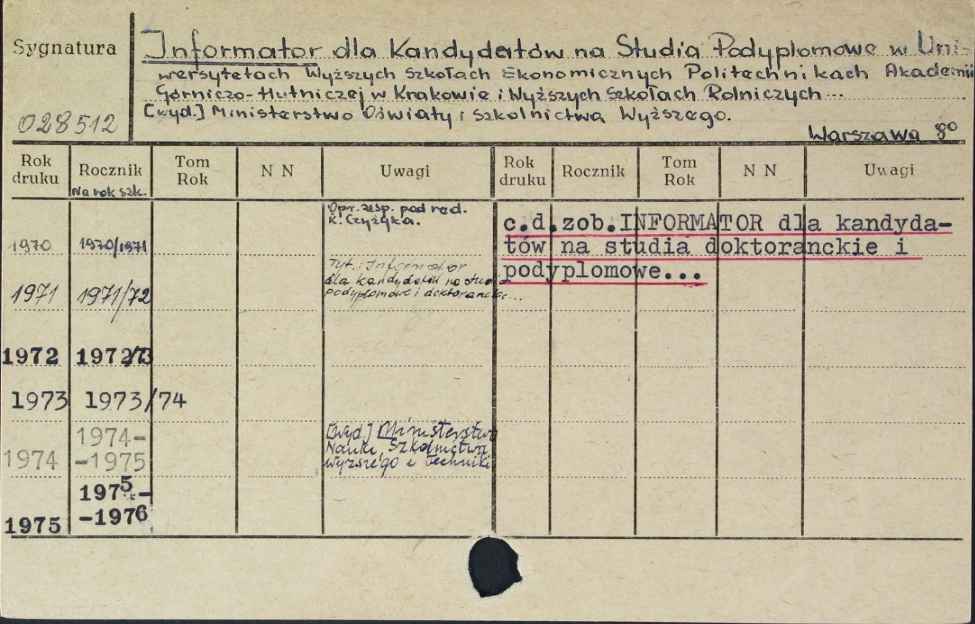 Sygnatura
Informator dla Kandydatów na Studia Podyplomowe w Uni-
wersytetach Wyższych Szkołach Ekonomicznych Politechnikach Akademii
Górniczo-Hutniczej w Krakowie i Wyższych Szkołach Rolniczych...
[wyd.] Ministerstwo Oświaty i Szkolnictwa Wyższego.
028512
Warszawa 8°
Rok druku Rocznik Tom Rok N N Uwagi Rok druku Rocznik Tom Rok N N Uwagi
Na rok szk.
Opr. zesp. pod red.
K. Czyżyka.
1970 1970/1971
Tyt.: Informator
dla kandydatów na studia
podyplomowe i doktoranckie...
1971 1971/72
1972 1972/73
1973 1973/74
1974 1974-
-1975
[wyd.] Ministerstwo
Nauki Szkolnictwa
Wyższego i Techniki
1975 1975-
-1976
c.d. zob. INFORMATOR dla kandyda-
tów na studia doktoranckie i
podyplomowe...